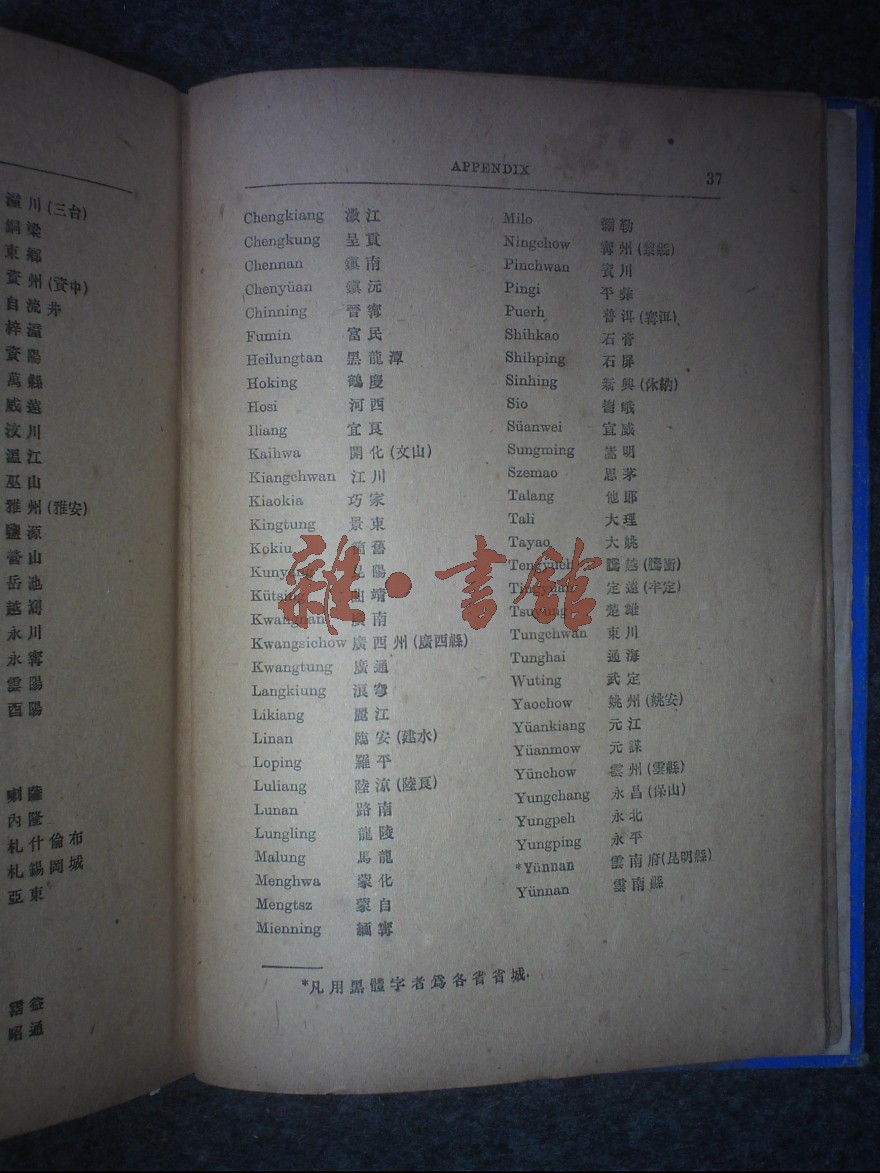 潼川(三台)
銅梁
東鄉
資州(資中)
自流井
梓潼
資陽
萬縣
威遠
汶川
溫江
巫山
雅州(雅安)
鹽源
營山
岳池
越嶲
永川
永寗
雲陽
酉陽
喇薩
內隆
札什倫布
札錫岡城
亞東
霑益
昭通
APPENDIX 37
Chengkiang 澂江
Chengkung 呈貢
Chennan 鎮南
Chenyüan 鎮沅
Chinning 晉寗
Fumin 富民
Heilungtan 黑龍潭
Hoking 鶴慶
Hosi 河西
Iliang 宜良
Kaihwa 開化(文山)
Kiangchwan 江川
Kiaokia 巧家
Kingtung 景東
Kokiu 箇舊
Kunyang 昆陽
Kütsing 曲靖
Kwangnan 廣南
Kwangsichow 廣西州(廣西縣)
Kwangtung 廣通
Langkiung 浪穹
Likiang 麗江
Linan 臨安(建水)
Loping 羅平
Luliang 陸涼(陸良)
Lunan 路南
Lungling 龍陵
Malung 馬龍
Menghwa 蒙化
Mengtsz 蒙自
Mienning 緬寗
Milo 彌勒
Ningchow 寗州(黎縣)
Pinchwan 賓川
Pingi 平彝
Puerh 普洱(寗洱)
Shihkao 石膏
Shihping 石屏
Sinhing 新興(休納)
Sio 嶍峨
Süanwei 宣威
Sungming 嵩明
Szemao 思茅
Talang 他郎
Tali 大理
Tayao 大姚
Tengyueh 騰越(騰衝)
Tingyüan 定遠(牟定)
Tsuyung 楚雄
Tungchwan 東川
Tunghai 通海
Wuting 武定
Yaochow 姚州(姚安)
Yüankiang 元江
Yüanmow 元謀
Yünchow 雲州(雲縣)
Yungchang 永昌(保山)
Yungpeh 永北
Yungping 永平
*Yünnan 雲南府(昆明縣)
Yünnan 雲南縣
*凡用黑體字者爲各省省城.
雜·書館